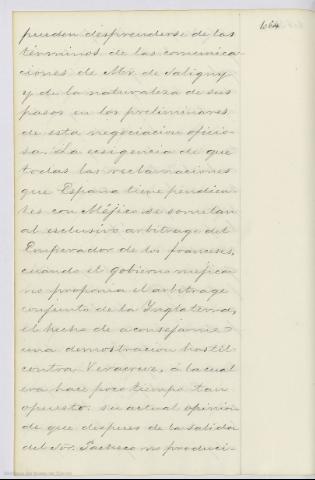 164
pueden desprenderse de los
términos de las comunica-
ciones de Mr. de Saligny
y de la naturaleza de sus
pasos en los preliminares
de esta negociacion oficio-
sa. La ecsigencia de que
todas las reclamaciones
que España tiene pendien-
tes con Méjico se sometan
al esclusivo arbitrage del
Emperador de los franceses,
cuando el gobierno mejica-
no proponia el arbitrage
conjunto de la Inglaterra,
el hecho de aconsejarme
una demostracion hostil
contra Veracruz, á la cual
era hace poco tiempo tan
opuesto: su actual opinion
de que despues de la salida
del Sor. Pacheco no produci-